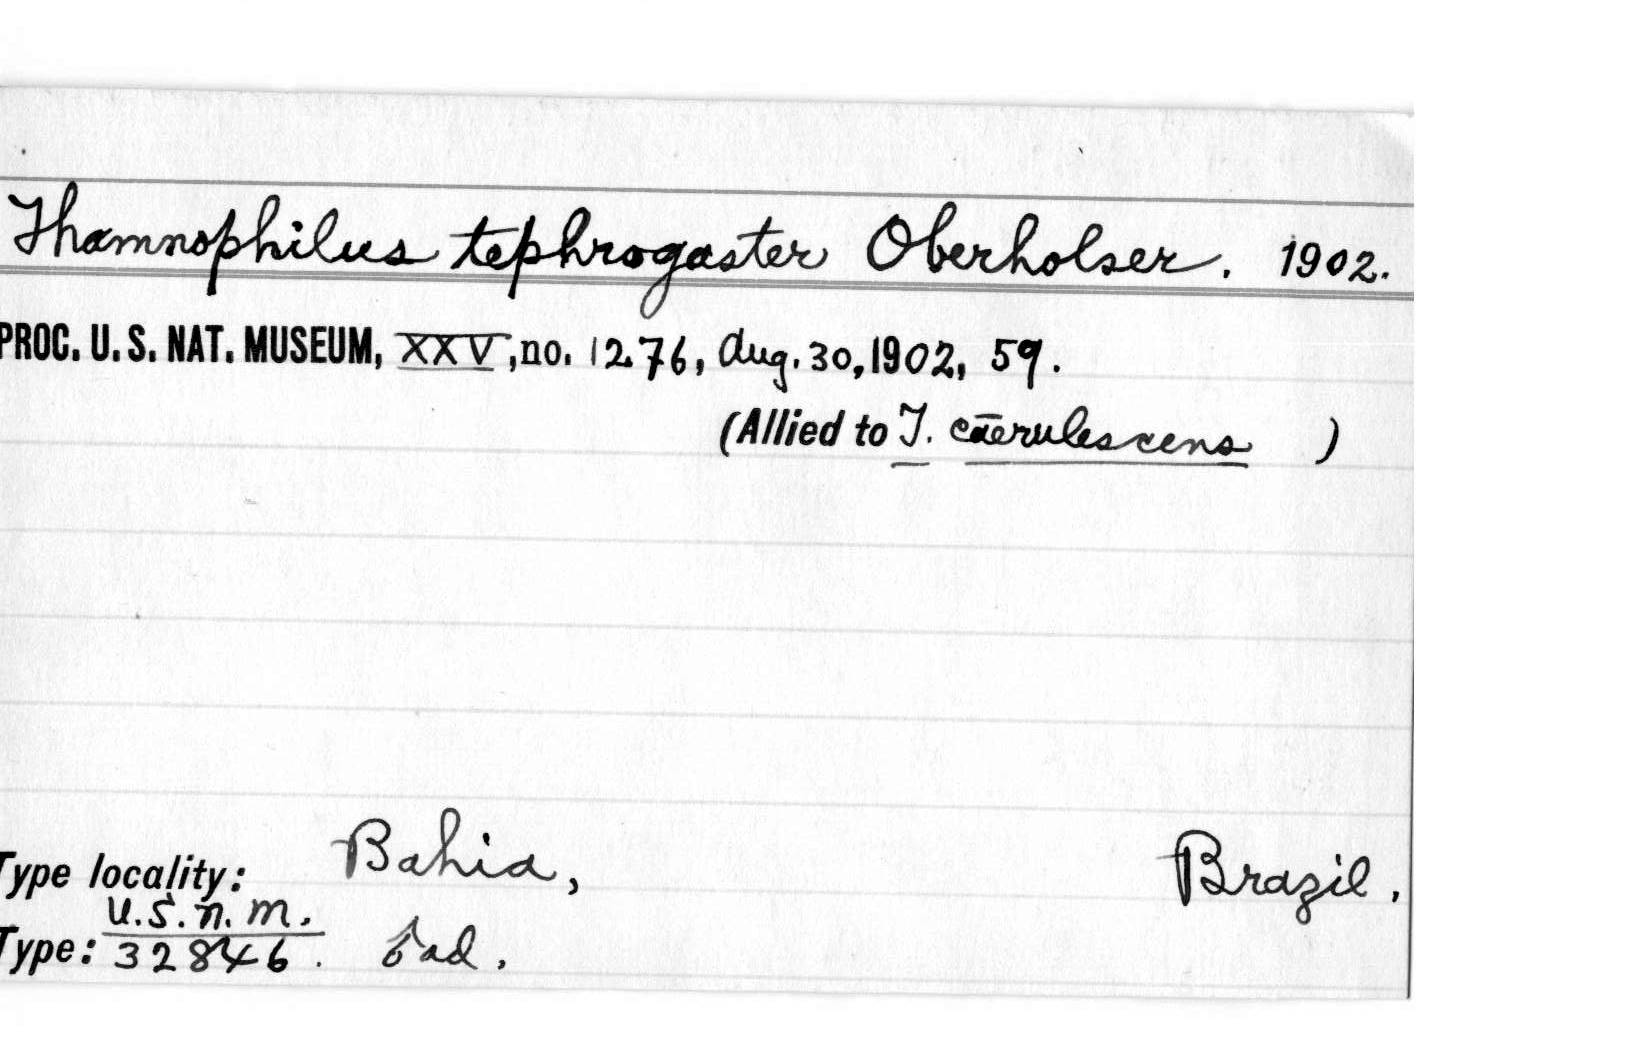 Thamnophilus tephrogaster Oberholser. 1902.
PROC. U. S. NAT. MUSEUM, XXV, no. 1276, Aug. 30, 1902, 59.
(Allied to T. caerulescens )
Type locality: Bahia, Brazil.
U.S.N.M.
Type: 32846. ad.